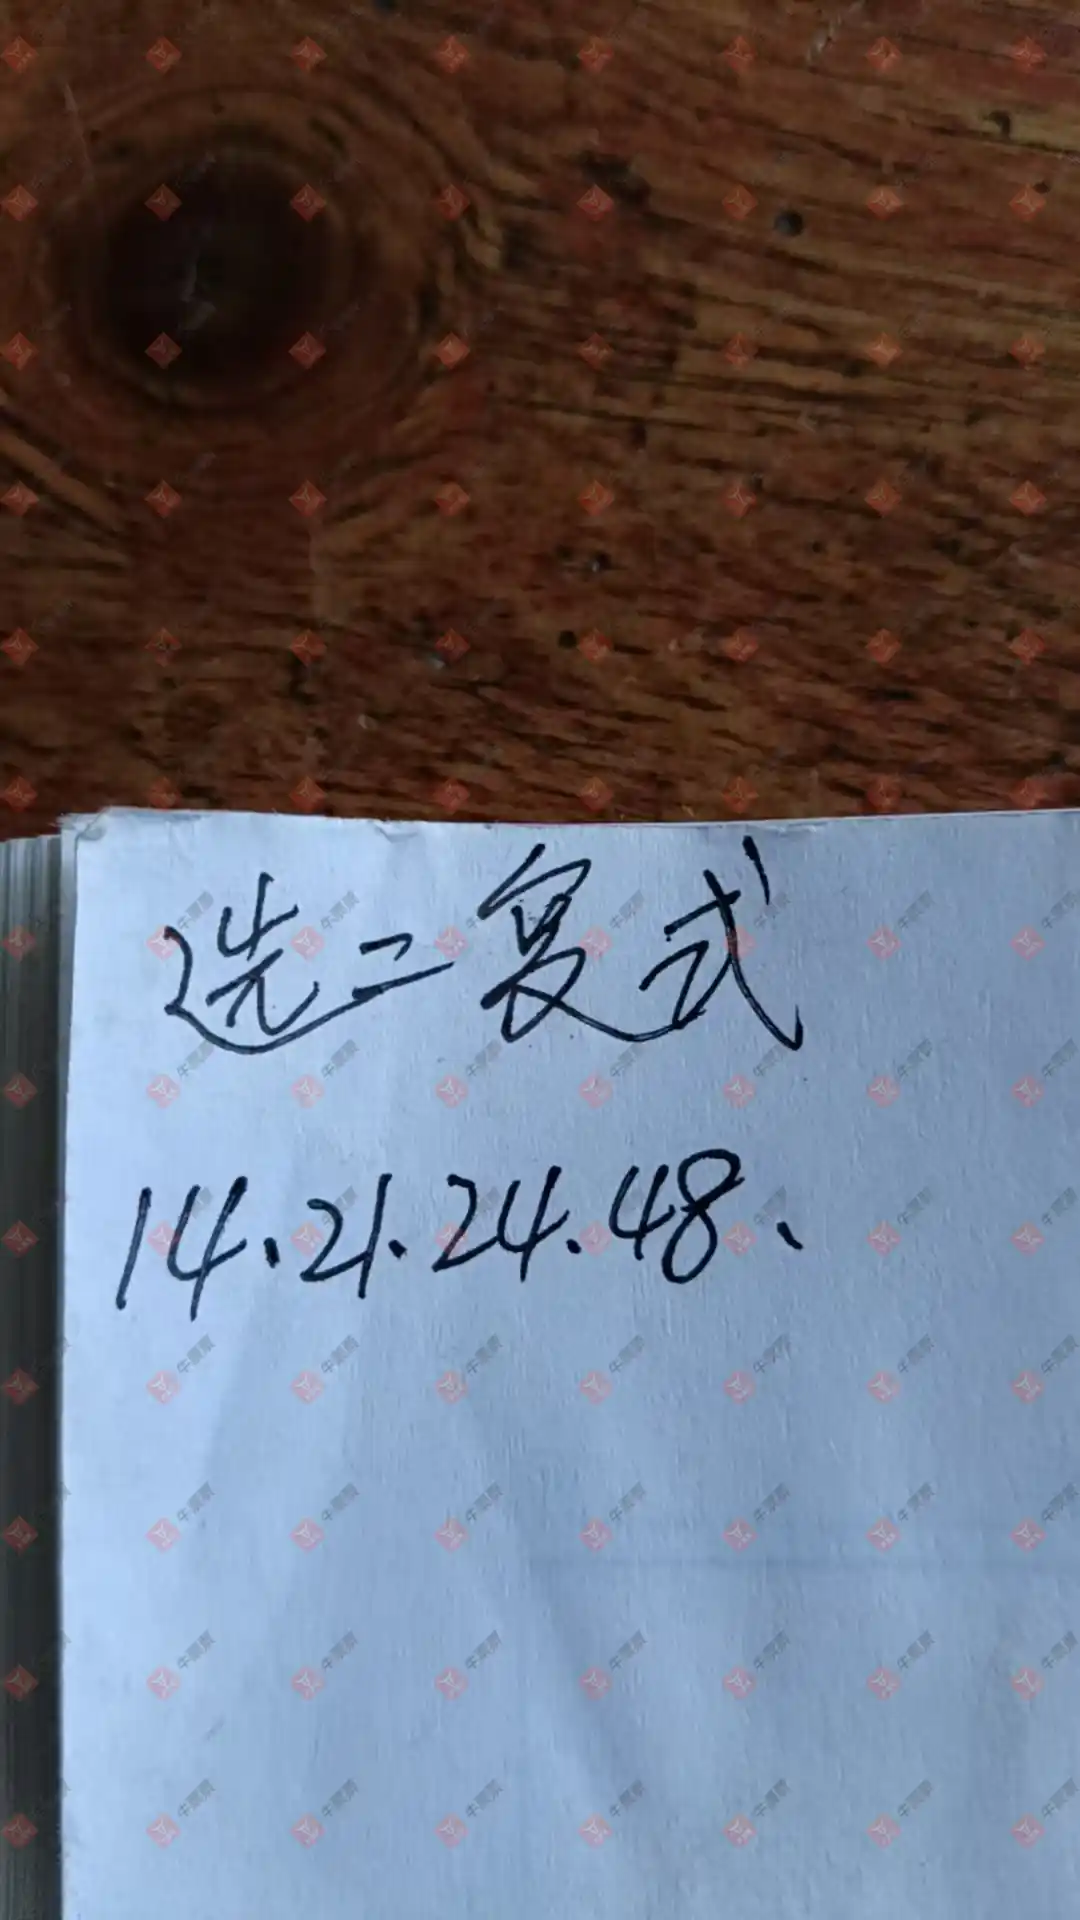 选二复式
14.21.24.48、